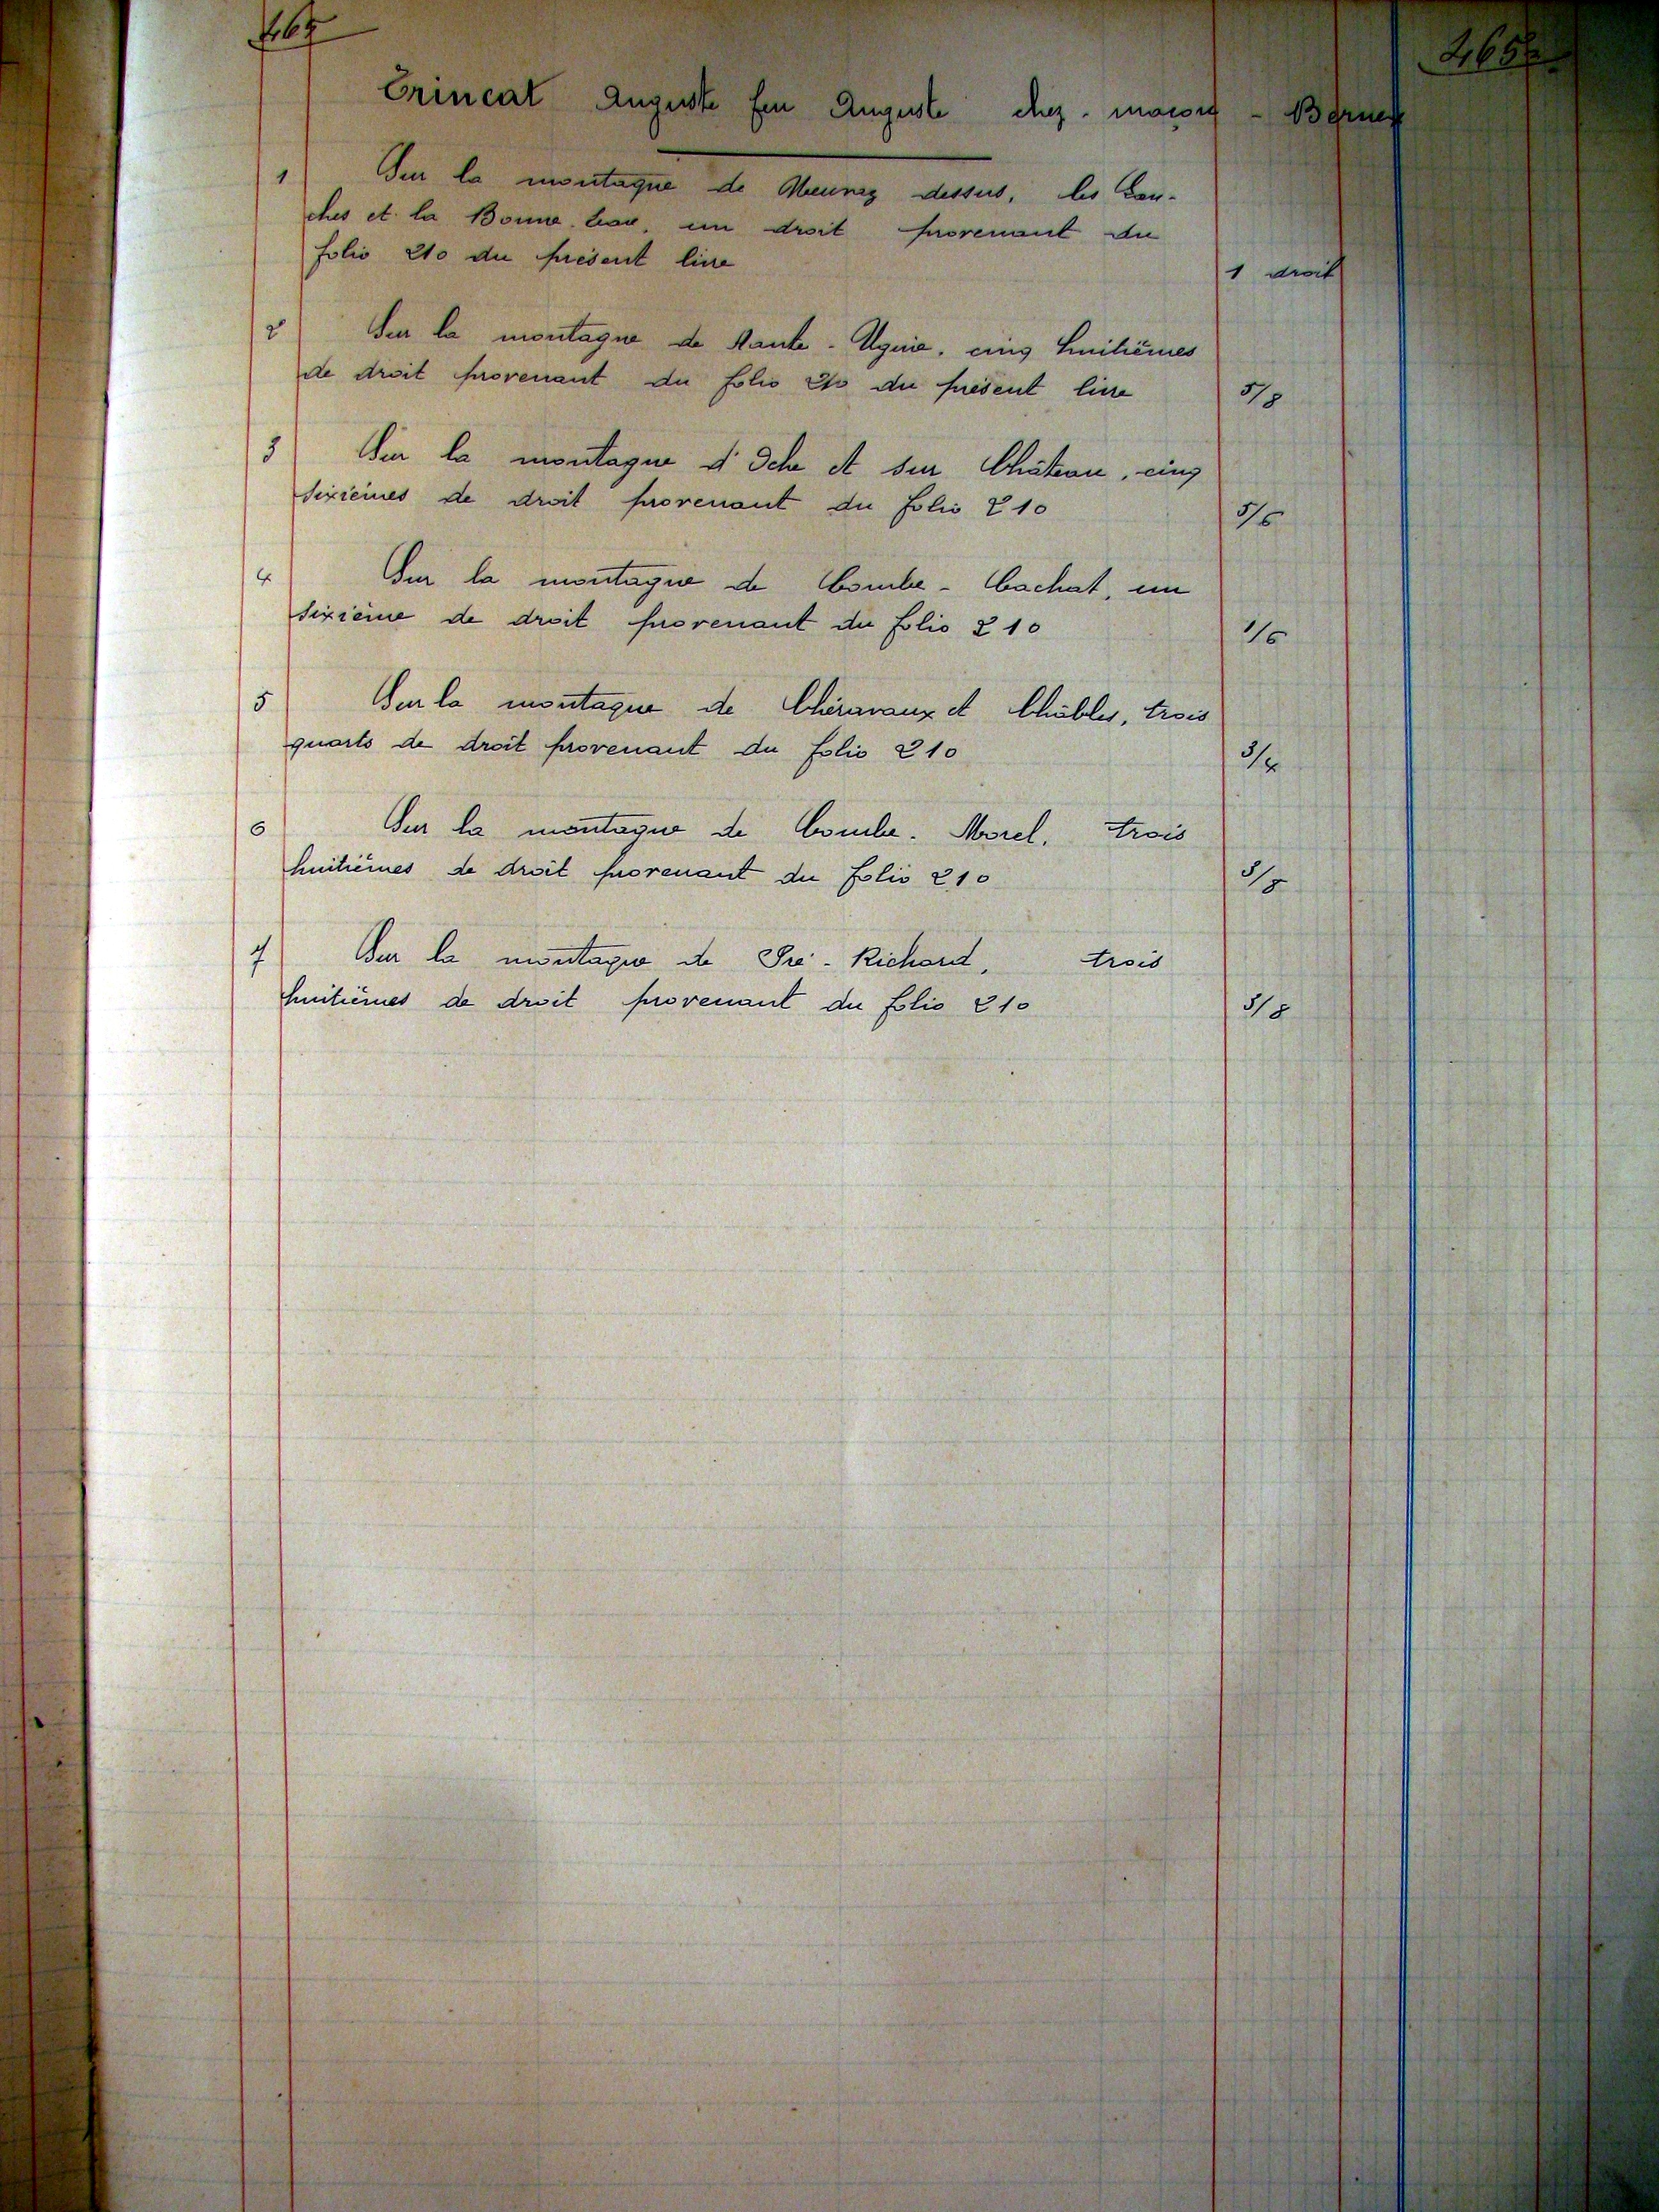 465
465
Trincat Auguste feu Auguste chez-maçon - Bernex
1 Sur la montagne de Meuraz dessus, les Lan-
ches et la Bonne-Eau, un droit provenant du
folio 210 du présent livre 1 droit
2 Sur la montagne de Haute-Ugine, cinq huitièmes
de droit provenant du folio 210 du présent livre 5/8
3 Sur la montagne d'Oche et sur Château, cinq
sixièmes de droit provenant du folio 210 5/6
4 Sur la montagne de Combe-Cachat, un
sixième de droit provenant du folio 210 1/6
5 Sur la montagne de et Châbles, trois
quarts de droit provenant du folio 210 3/4
6 Sur la montagne de Combe-Morel, trois
huitièmes de droit provenant du folio 210 3/8
7 Sur la montagne de Pré-Richard, trois
huitièmes de droit provenant du folio 210 3/8